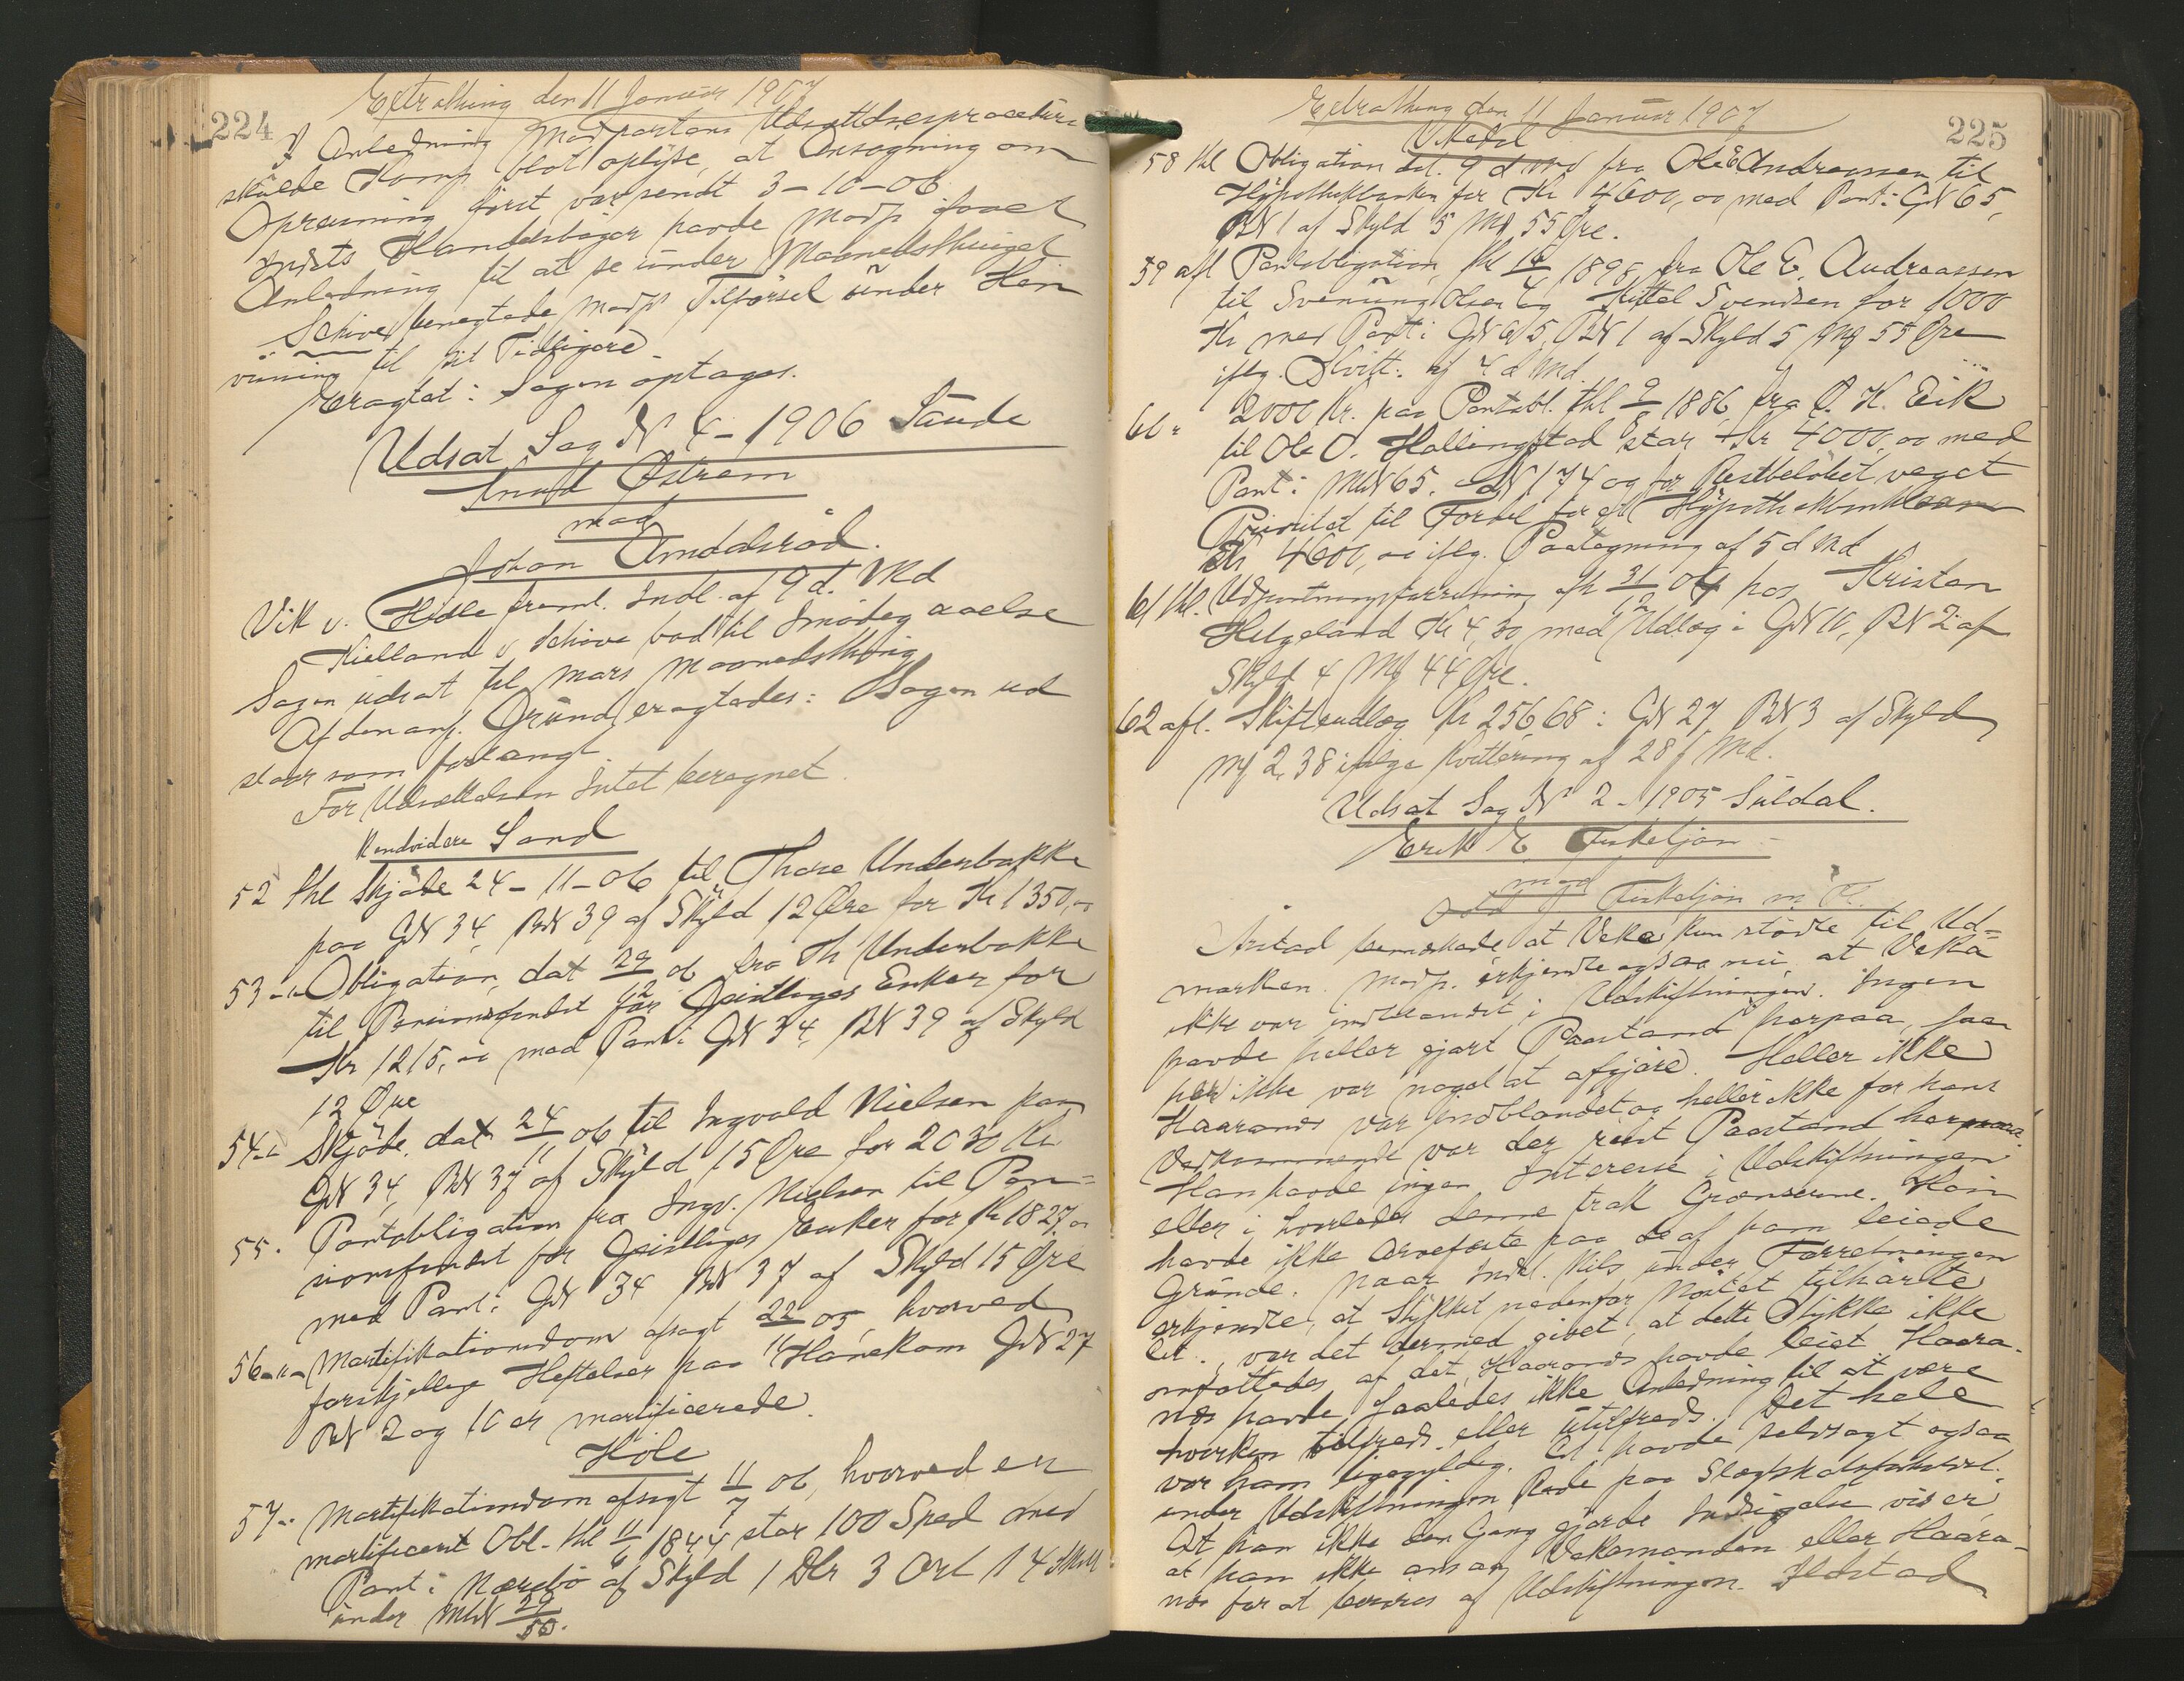 224
Extrathing den 11 Januar 1907
I Anledning Modpartens Udsættelsesprocedure
skulde Komp. blot oplyse, at Ansøgning om
Opreisning først var sendt 3-10-06.
Indsts Handelsbøger havde Modp faaet
Anledning til at se under Maanedsthinget
Schiøtz benegtede Modp's Tilførsel under Hen
visning til sit Tidligere.
Eragtet: Sagen optages.
Udsat Sag N 4-1906 Saude
Knud Østrem
mod
Johan Amdalsrød.
Vik v. Hidle freml. Indl. af 9 d. Md
Kielland v Schiøtz bad til Imødegaaelse
Sagen udsat til Mars Maanedsthing
Af den anf. Grund eragtedes: Sagen ud
staar som forlangt.
For Udsættelsen Intet beregnet.
Sand
52 thl Skjøde 24-11-06 til Thore Underbakke
paa GN 34, BN 39 af Skyld 12 Øre for Kr 1350,00
53-"- Obligation, dat 29/12 06 fra Th Underbakke
til Pensionsfondet for Geistliges Enker for
Kr 1215,00 med Pant i GN 34, BN 39 af Skyld
12 Øre
54-"- Skjøde, dat 24/11 06 til Ingvald Nielsen paa
GN 34, BN 37 af Skyld 15 Øre for 2030 Kr
55. Pantobligation fra Ingv. Nielsen til Pen=
sionsfondet for Geistliges Enker for Kr 1827,00
med Pant i GN 34 BN 37 af Skyld 15 Øre
56-"- Mortifikationsdom afsagt 22/11 05, hvorved
forskjellige Heftelser paa Hanekam GN 27
BN 2 og 10 er mortificerede.
Høle
57-"- Mortifikationsdom afsagt 11/7 06, hvorved er
mortificeret Obl. thl 11/6 1844 stor 100 Spd med
Pant i Nærebø af Skyld 1 Dlr 3 Ort 14 Skill
under MN 29/50.
225
Extrathing den 11 Januar 1907
Vikedal
58 thl Obligation dat. 9 d Md fra Ole E Andreassen til
Hypothekbanken for Kr 4600,00 med Pant i GN 65,
BN 1 af Skyld 5 Mk 55 Øre.
59 afl Pantobligation, thl 14/4 1898 fra Ole E. Andreassen
til Svenung Olsen og Kittel Svendsen for 1000
Kr med Pant i GN 65, BN 1 af Skyld 5 Mk 55 Øre
iflg. Kvitt. af 4 d Md.
60 " 2000 Kr. paa Pantobl. thl 9/8 1886 fra O. K. Eik
til Ole O. Hallingstad stor Kr 4000,00 med
Pant i MN 65. LN 174 og for Restbeløbet veget
Prioritet til Fordel for et Hypothekbanklaan
Kr 4600,00 iflg. Paategning af 5 d Md
61 thl. Udpantningsforretning af 31/12 04 hos Kristen
Helgeland Kr 4,30 med Udlæg i GN 10, BN 2 af
Skyld 4 Mk 44 Øre.
62 afl. Skifteudlæg Kr 256,68 i GN 27 BN 3 af Skyld
Mk 2,38 ifølge Kvittering af 28 f Md.
Udsat Sag N 2-1905 Suldal.
Erik E Fiskeljøn
mod
Odd J Fiskeljøn m. Fl.
Aarstad bemærkede, at Veka kun stødte til Ud=
marken. Modp. erkjendte ogsaa nu, at Veka
ikke var indblandet i Udskiftningen. Ingen
havde heller gjort Paastand herpaa, saa
her ikke var noget at afgjøre. Heller ikke
Haaranes var indblandet og heller ikke for hans
Vedkommende var der reist Paastand herpaa.
Han havde ingen Interesse i Udskiftningen
eller i hvorledes denne trak Grænserne. Han
havde ikke Arvefæste paa de af ham leiede
Grunde. Naar Indst. Nils under Forretningen
erkjendte, at Stykket nedenfor Nøstet tilhørte
Cit., var det dermed givet, at dette Stykke ikke
omfattedes af det, Haaranes havde leiet. Haara-
nes havde saaledes ikke Anledning til at være
hverken tilfreds eller utilfreds. Det hele
var ham ligegyldig. Cit. havde selvsagt ogsaa
under Udskiftningen Rede paa Slægtskabsforholdet.
At han ikke den Gang gjorde Indsigelse viser,
at han ikke ansaa Vekamanden eller Haara-
nes for at berøres af Udskiftningen. Ildstad